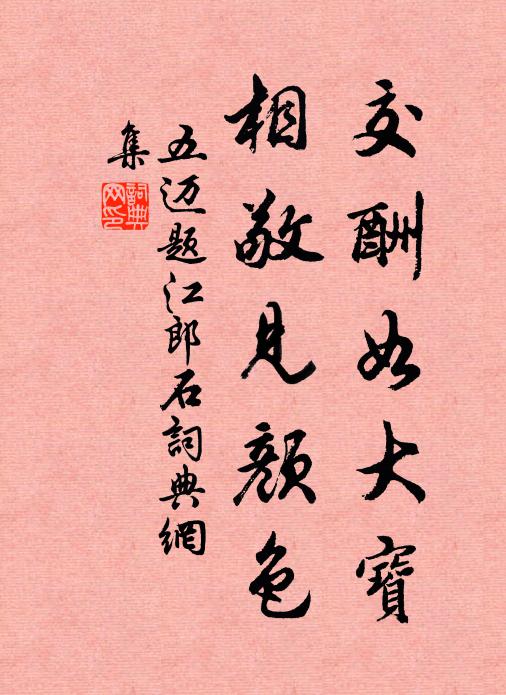 交酬如大寶
相敬見顏色
五迈题江郎石詞典網
集
詞典网印